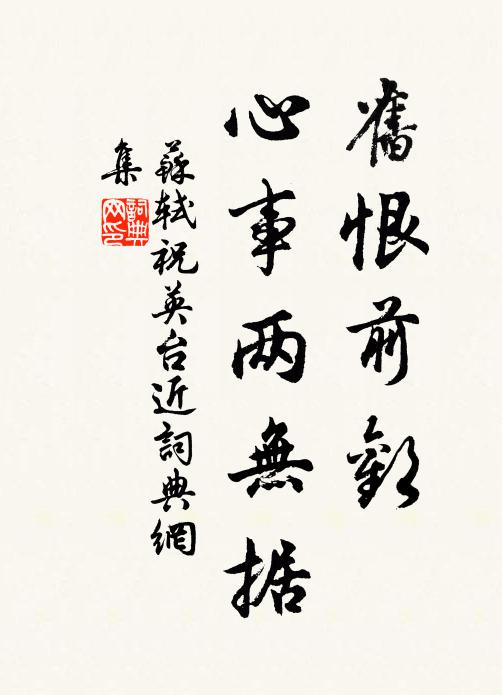 舊恨前歡
心事两無据
蘇軾祝英台近詞典網
集
詞典網印